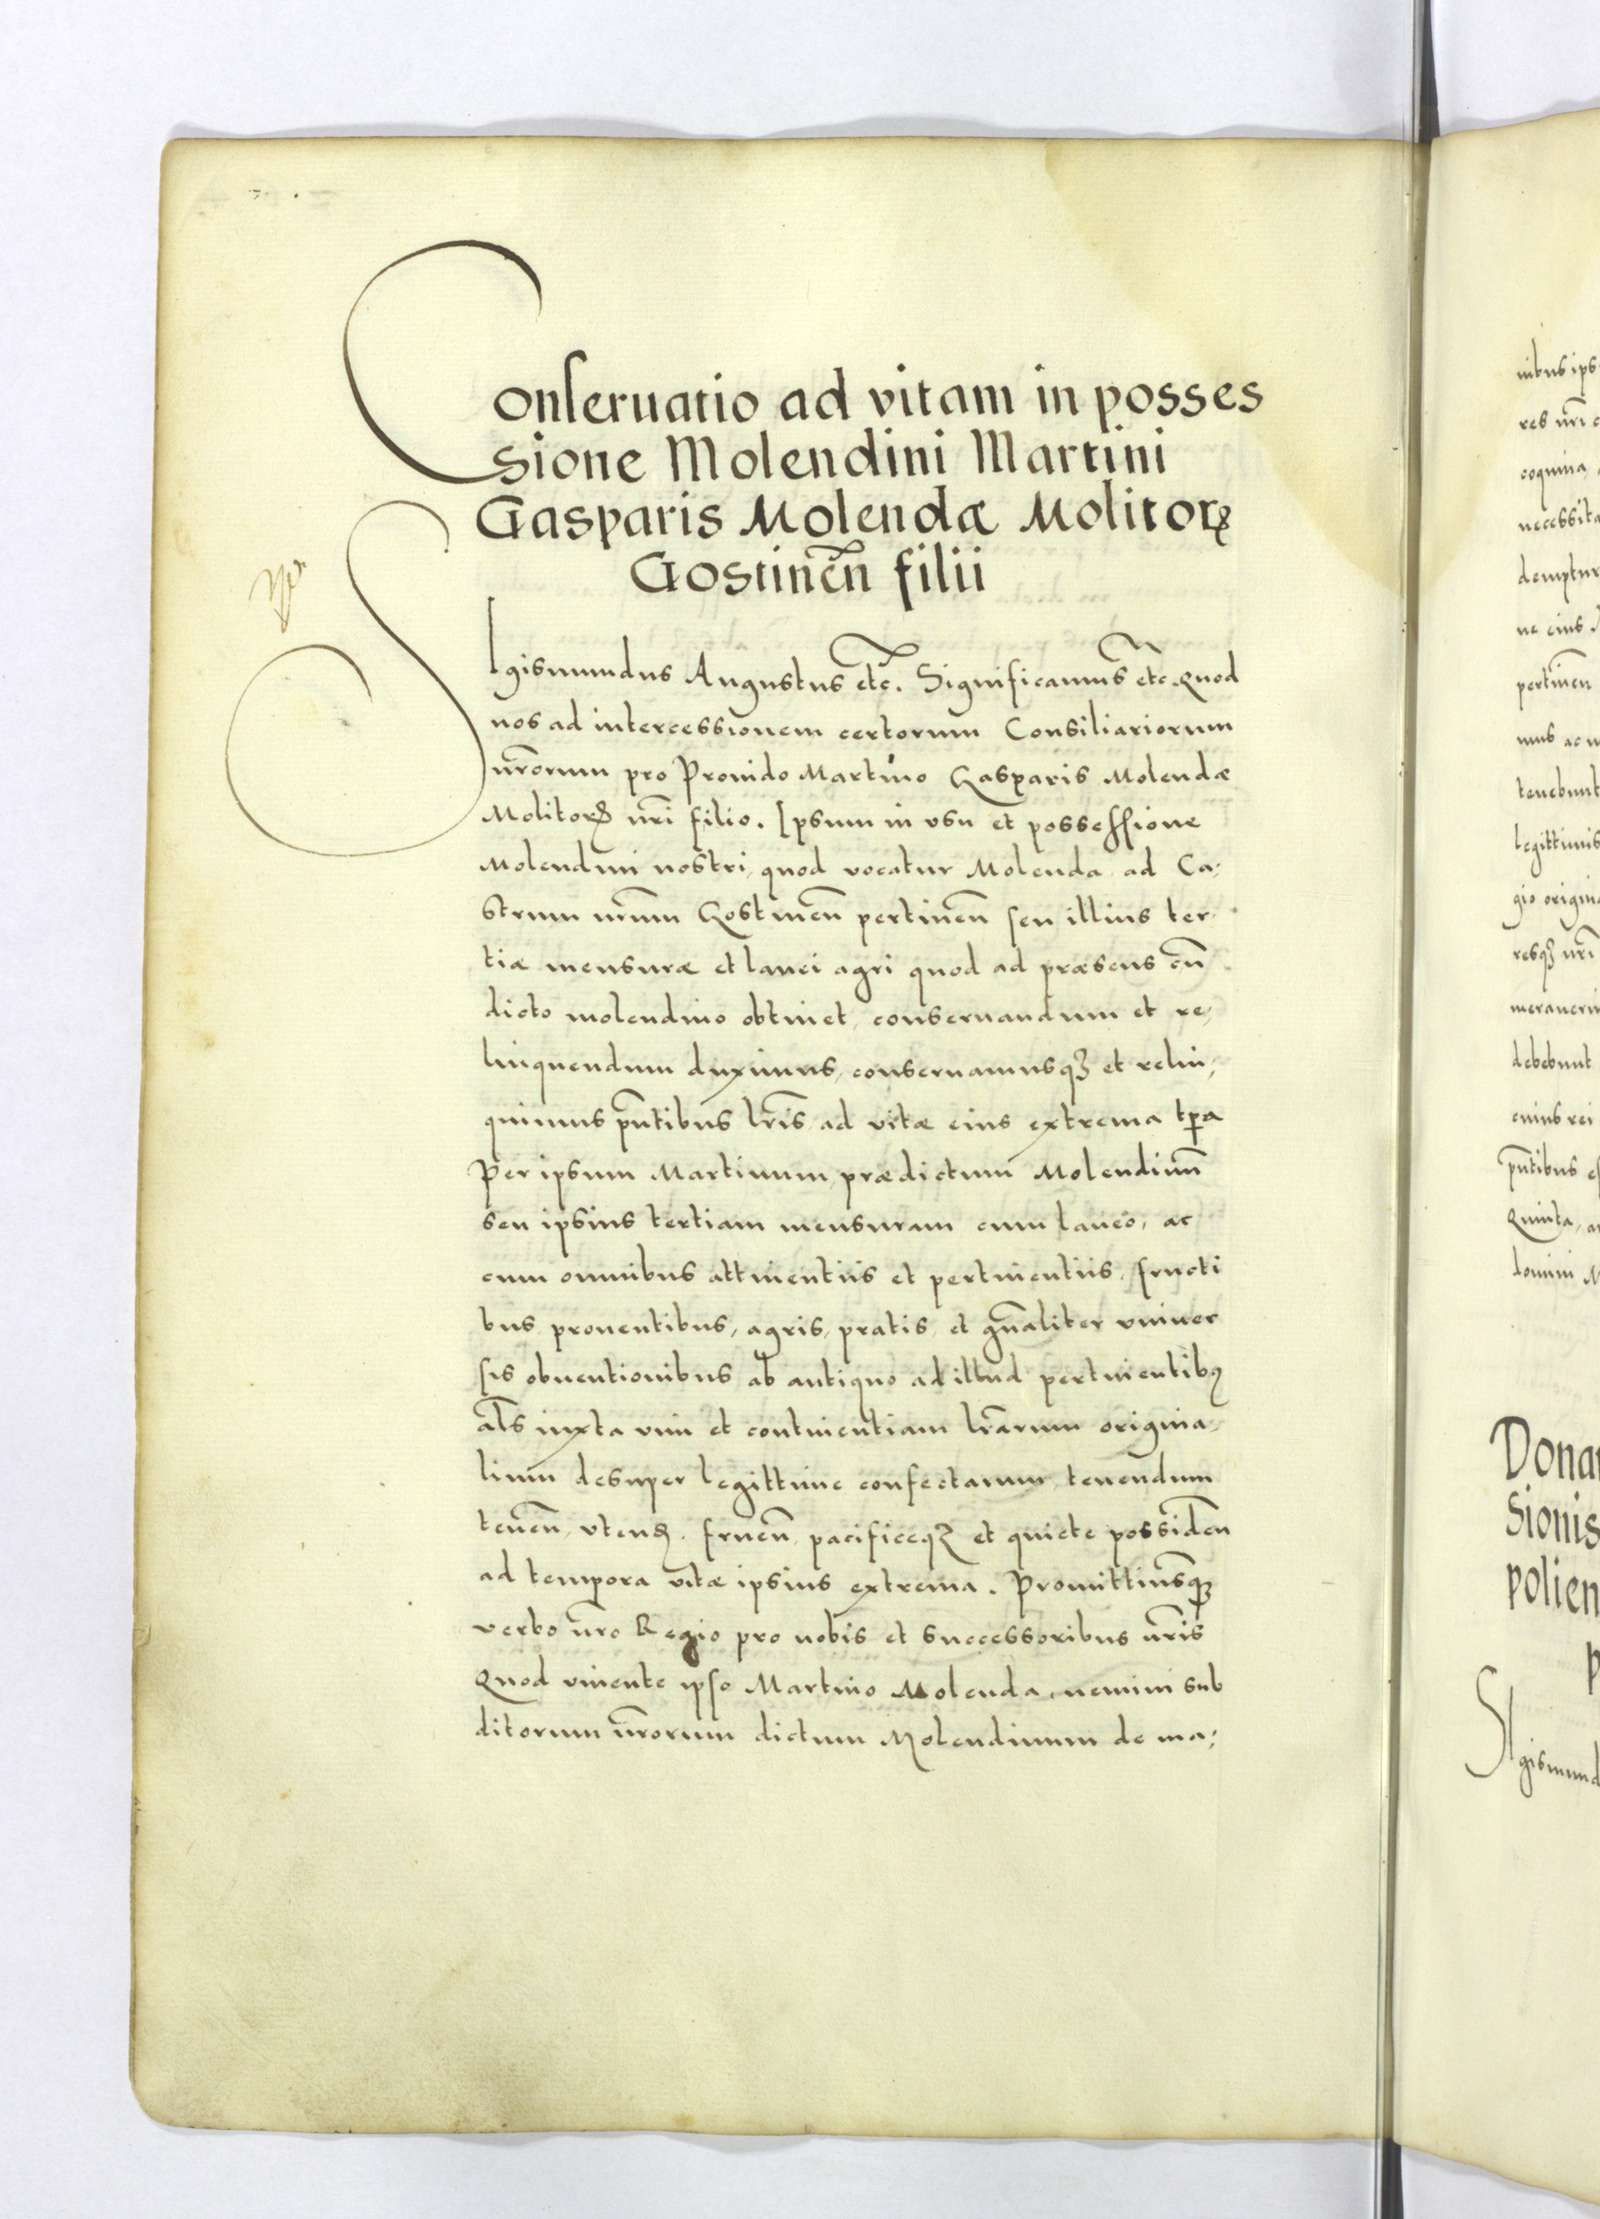 Conseruatio ad vitam in posses
sione Molendini Martini
Gasparis Molendæ Molitorꝝ
Gostinen̄ filii
SIgismundus Augustus etc̄. Significamus etc̄. Quod
nos ad intercessionem certorum Consiliariorum
nr̄orum pro Prouido Martino Gasparis Molendæ
Molitorꝝ nr̄i filio. Ipsum in vsu et possessione
Molendini nostri, quod vocatur Molenda ad Ca,
strum nr̄um Gostinen̄ pertinen̄ seu illius ter
tiæ mensuræ et lanei agri quod ad præsens cū
dicto molendino obtinet, conseruandum et re,
linquendum duximus, conseruamusqꝫ et relin,
quimus pn̄tibus lr̄is ad vitæ eius extrema tp̄a
Per ipsum Martinum prædictum Molendinū
seu ipsius tertiam mensuram cum laneo, ac
cum omnibus attinentiis et pertinentiis, fructi
bus prouentibus, agris, pratis, et gn̄aliter vniuer
sis obuentionibus ab antiquo ad illud pertinentibꝫ
al̄s iuxta vim et continentiam lr̄arum origina,
lium desuper legittime confectarum, tenendum
tenen̄, vtenꝝ, fruen̄, pacificeqꝫ et quiete possiden̄
ad tempora vitæ ipsius extrema. Promittimusqꝫ
verbo nr̄o Regio pro nobis et successoribus nr̄is
Quod viuente ipso Martino Molenda, nemini sub
ditorum nr̄orum dictum Molendinum de ma,
nibus ips
res nr̄i
coquina,
necessita
demptur
ne eius
pertinen
mus ac
tenebunt
legittimis
gio origin
resqꝫ nr̄i
merauerin
debebunt
cuius rei
pn̄tibus
Quinta,
domini
Dona
sionis
polien
SIgismund